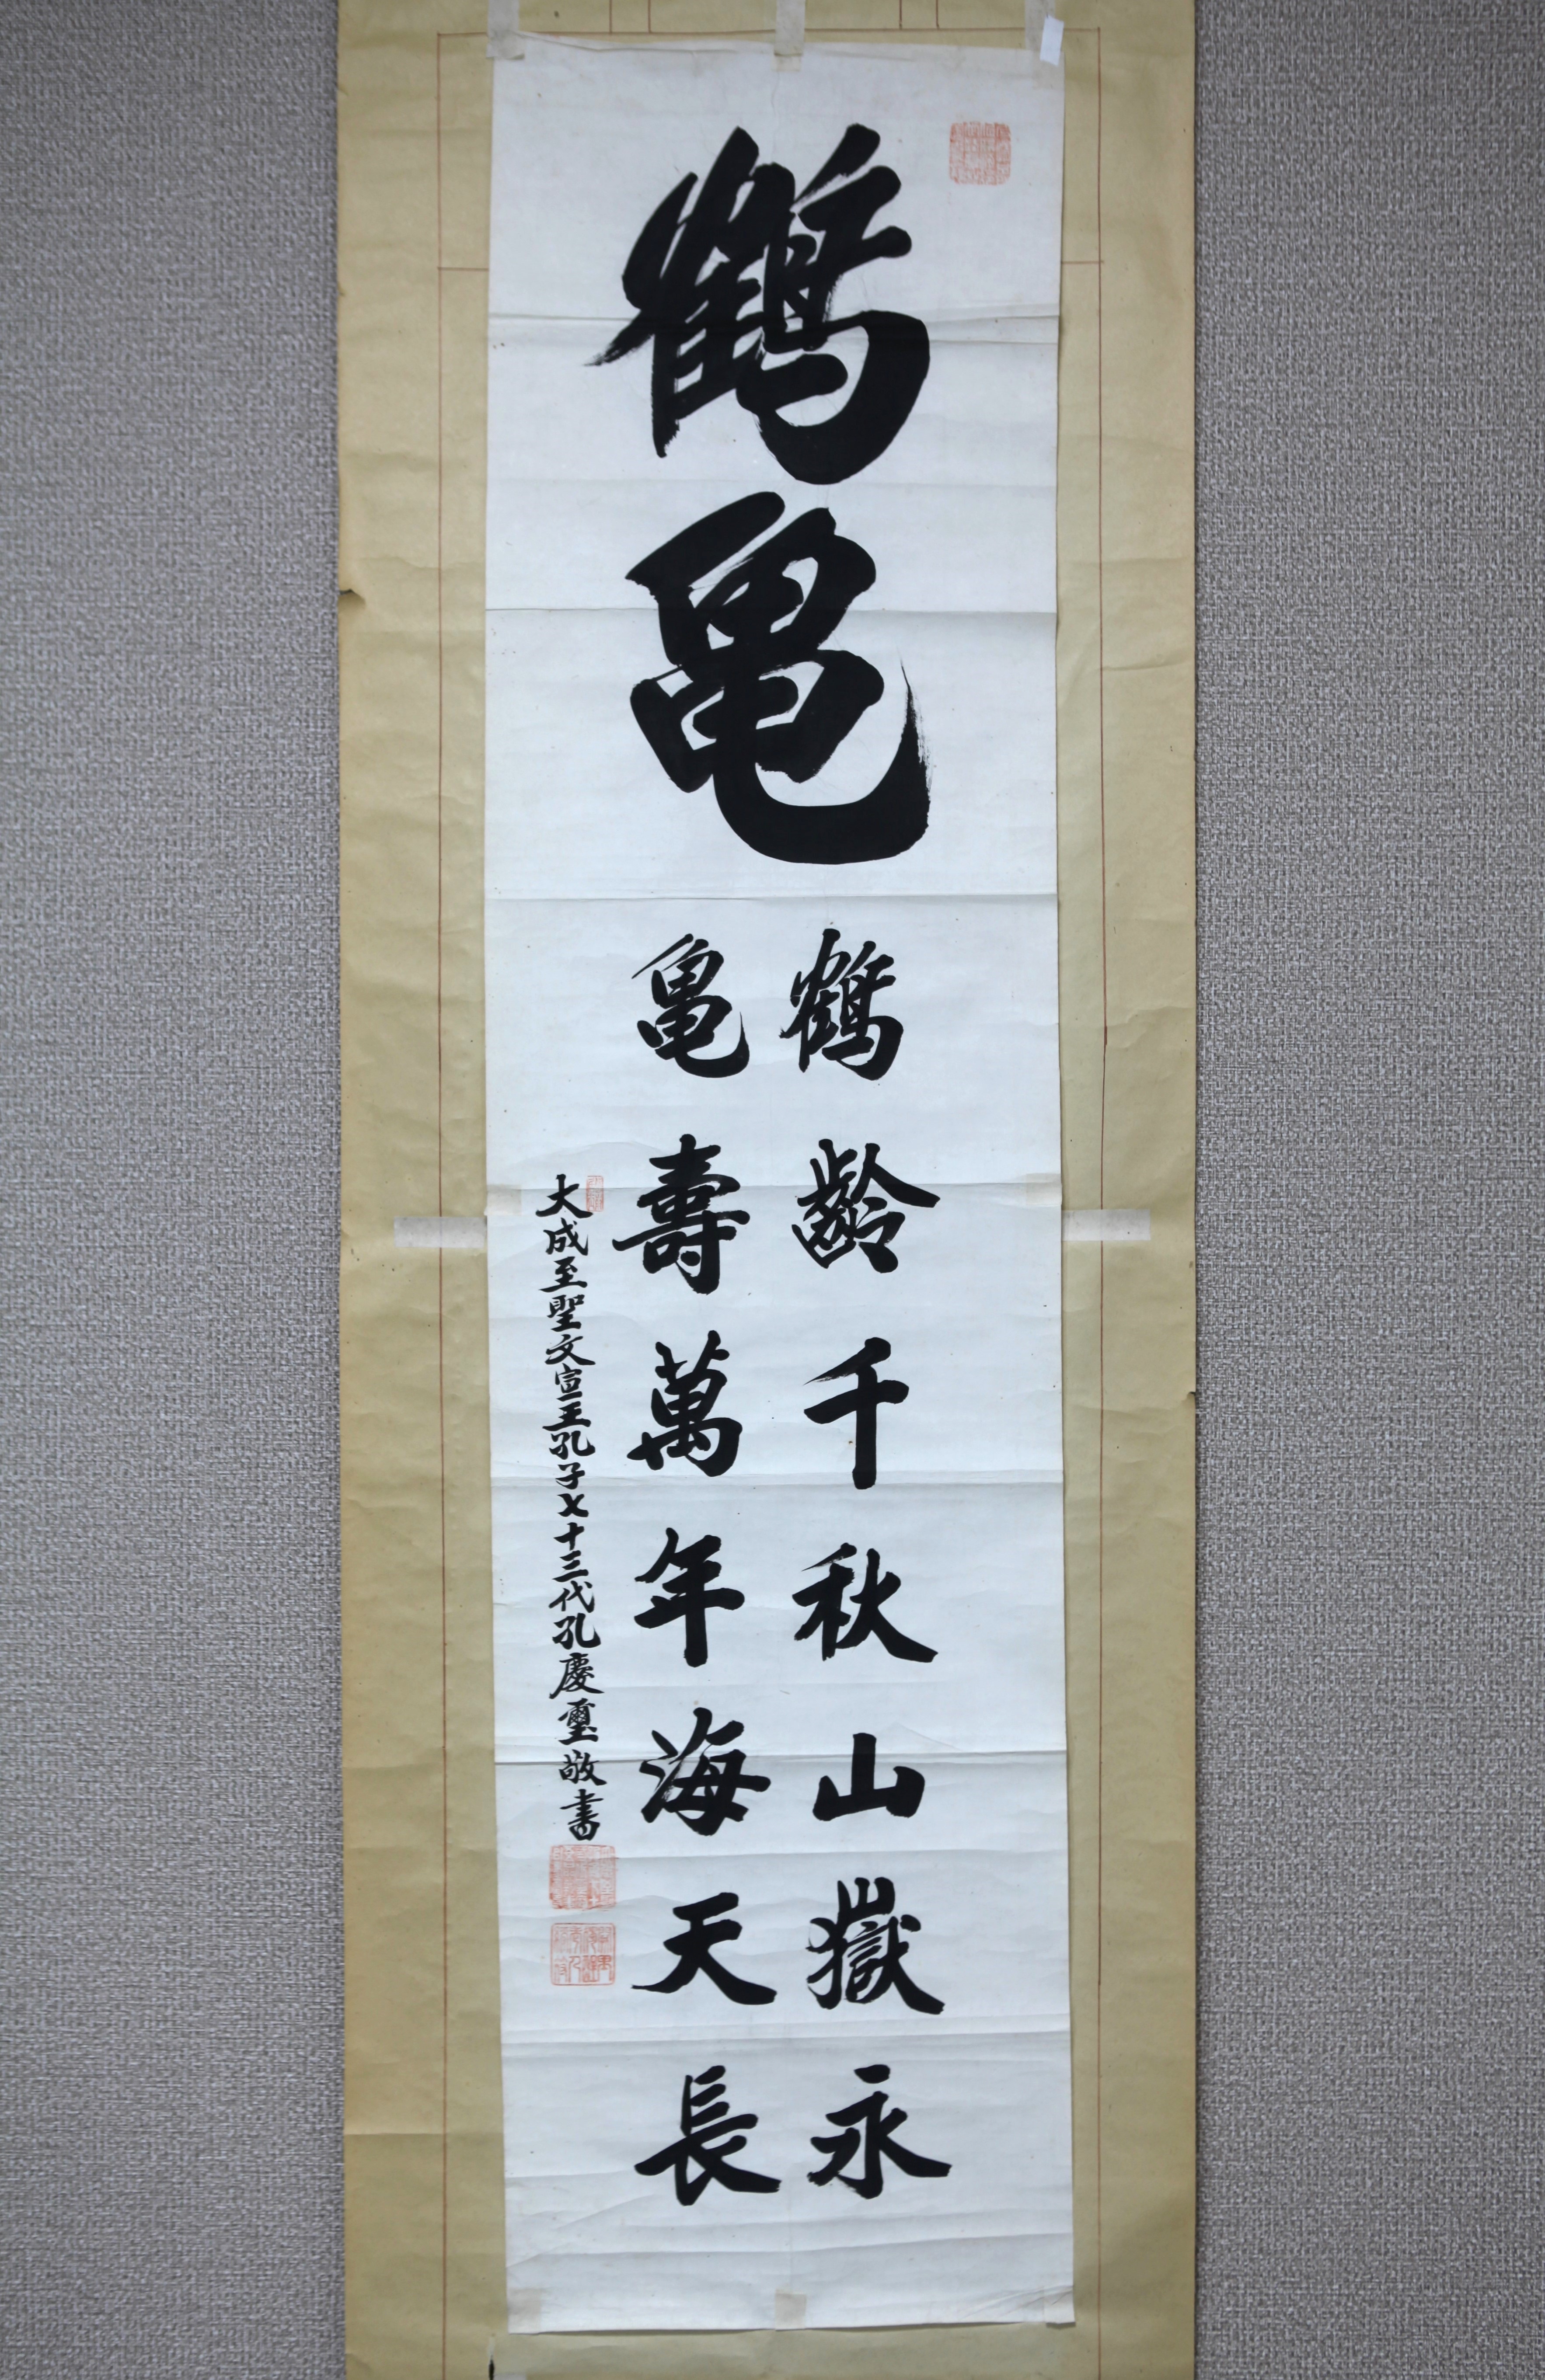 鶴亀
鶴齡千秋山嶽永
亀壽萬年海天長
大成至聖文宣王孔子七十三代孔慶璽敬書